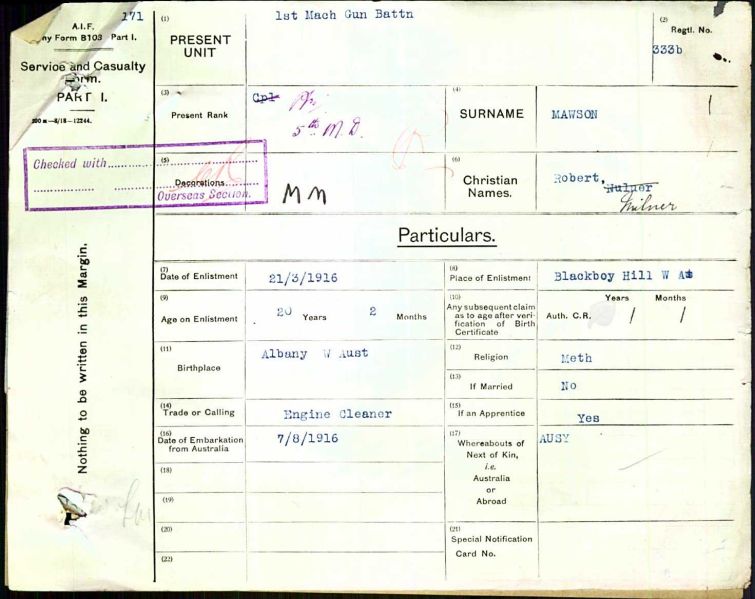 171
A.I.F.
ny Form B103 Part I.
Service and Casualty
Form.
PART I.
200 m—8/18—12244.
(1)
PRESENT
UNIT
1st Mach Gun Battn
(2)
Regtl. No.
333b
(3)
Present Rank
Cpl
5th M.D.
(4)
SURNAME
MAWSON
Checked with
Overseas Section.
(5)
Decorations.
MM
(6)
Christian
Names.
Robert, Nulner
Milner
Particulars.
(7)
Date of Enlistment
21/3/1916
(8)
Place of Enlistment
Blackboy Hill W A
(9)
Age on Enlistment
20 Years 2 Months
(10)
Any subsequent claim
as to age after veri-
fication of Birth
Certificate
Years Months
Auth. C.R. / /
(11)
Birthplace
Albany W Aust
(12)
Religion
Meth
(13)
If Married
No
(14)
Trade or Calling
Engine Cleaner
(15)
If an Apprentice
Yes
(16)
Date of Embarkation
from Australia
7/8/1916
(17)
Whereabouts of
Next of Kin,
i.e.
Australia
or
Abroad
AUSY
(18)
(19)
(20)
(21)
Special Notification
Card No.
(22)
Nothing to be written in this Margin.